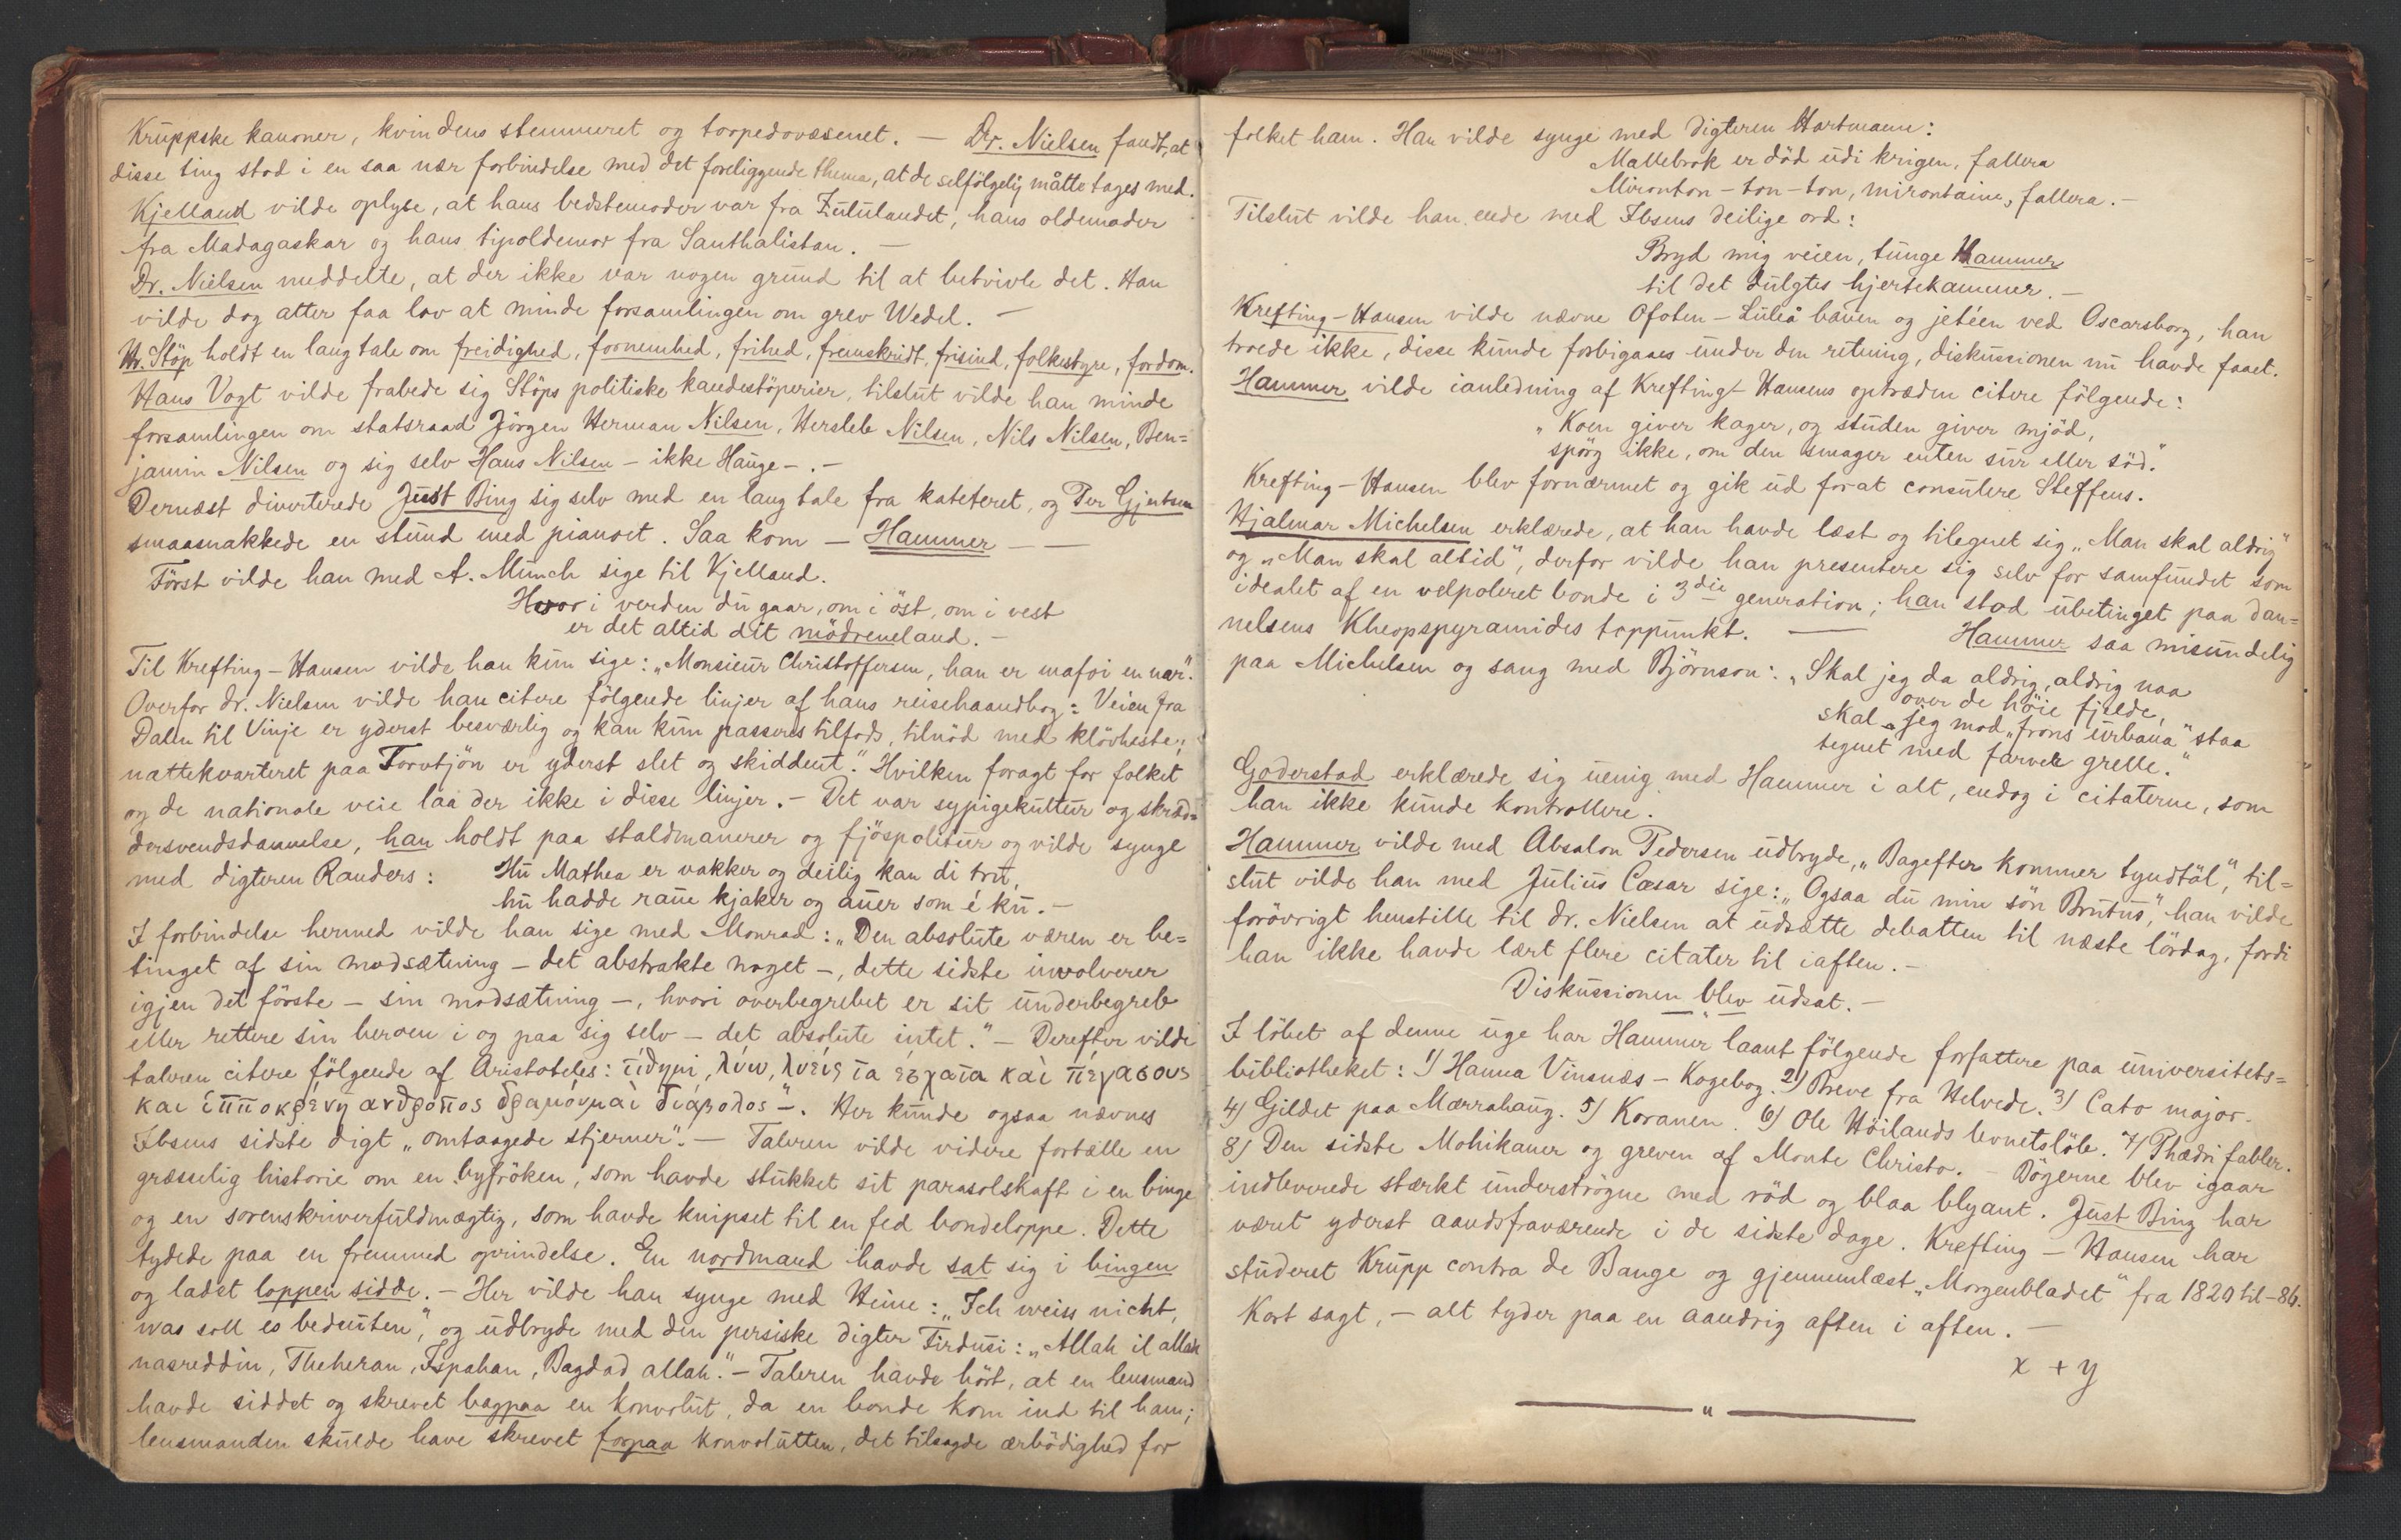 Kruppske kanoner, kvindens stemmeret og torpedovæsenet. — Dr. Nielsen fandt, at
disse ting stod i en saa nær forbindelse med det foreliggende thema, at de selfölgelig måtte tages med.
Kjelland vilde oplyse, at hans bedstemoder var fra Zululandet, hans oldemoder
fra Madagaskar og hans tipoldemor fra Santhalistan. —
Dr. Nielsen meddelte, at der ikke var nogen grund til at betvivle det. Han
vilde dog atter faa lov at minde forsamlingen om grev Wedel. —
Hr. Stöp holdt en lang tale om freidighed, fornemhed, frihed, fremskridt, frisind, folkestyre, fordom.
Hans Vogt vilde frabede sig Stöps politiske kandestöperier, tilslut vilde han minde
forsamlingen om statsraad Jörgen Herman Nilsen, Hersleb Nilsen, Nils Nilsen, Ben=
jamin Nilsen og sig selv Hans Nilsen – ikke Hauge – . –
Dernæst diverterede Just Bing sig selv med en lang tale fra kateteret, og Per Gjertsen
smaasnakkede en stund med pianoet. Saa kom — Hammer — —
Först vilde han med A. Munch sige til Kjelland.
Hvor i verden du gaar, om i öst, om i vest
er det altid dit mödreneland. –
Til Krefting – Hansen vilde han kun sige: „Monsieur Christoffersen, han er mafoi en nar".
Overfor dr. Nielsen vilde han citere fölgende linjer af hans reisehaandbog: Veien fra
Dalen til Vinje er yderst besværlig og kan kun passeres tilfods, tilnöd med klövheste;
nattekvarteret paa Torvtjön er yderst slet og skiddent." Hvilken foragt for folket
og de nationale veie laa der ikke i disse linjer. – Det var sypigekultur og skræd=
dersvendsdannelse, han holdt paa staldmanerer og fjöspolitur og vilde synge
med digteren Randers: Hu Mathea er vakker og deilig kan di tru,
hu hadde raue kjaker og auer som é ku. –
I forbindelse hermed vilde han sige med Monrad: „Den absolute væren er be=
tinget af sin modsætning – det abstrakte noget –, dette sidste involverer
igjen det förste – sin modsætning –, hvori overbegrebet er sit underbegreb
eller rettere sin beroen i og paa sig selv – det absolute intet." – Derefter vilde
taleren citere fölgende af Aristoteles: τίθημι, λύω, λυείς τα έσχατα καὶ πέγασους
και ίπποκρένη ανθροπος δραμούμαι διάβολος" –. Her kunde ogsaa nævnes
Ibsens sidste digt „omtaagede stjerner". – Taleren vilde videre fortælle en
græsselig historie om en byfröken, som havde stukket sit parasolskaft i en binge
og en sorenskriverfuldmægtig, som havde knipset til en fed bondeloppe. Dette
tydede paa en fremmed oprindelse. En nordmand havde sat sig i bingen
og ladet loppen sidde. – Her vilde han synge med Heine: „Ich weiss nicht,
was soll es bedeuten", og udbryde med den persiske digter Firdusi: „Allah il allah
nasreddin, Theheran, Ispahan, Bagdad allah." – Taleren havde hört, at en lensmand
havde siddet og skrevet bagpaa en konvolut, da en bonde kom ind til ham;
lensmanden skulde have skrevet forpaa konvolutten, det tilsagde ærbödighed for
folket ham. Han vilde synge med digteren Hartmann:
Mallebrok er död udi krigen, fallera
Mironton – ton – ton, mirontaine, fallera. –
Tilslut vilde han ende med Ibsens deilige ord:
Bryd mig veien, tunge Hammer
til det dulgtes hjertekammer. –
Krefting – Hansen vilde nævne Ofoten – Luleå banen og jetéen ved Oscarsborg, han
troede ikke, disse kunde forbigaaes under den retning, diskussionen nu havde faaet.
Hammer vilde ianledning af Krefting – Hansens optræden citere fölgende:
„Koen giver kager, og studen giver mjöd,
spörg ikke, om den smager enten sur eller söd."
Krefting – Hansen blev fornærmet og gik ud for at consulere Steffens.
Hjalmar Michelsen erklærede, at han havde læst og tilegnet sig „Man skal aldrig"
og „Man skal altid", derfor vilde han presentere sig selv for samfundet som
idealet af en velpoleret bonde i 3die generation; han stod ubetinget paa dan=
nelsens Kheopspyramides toppunkt. — Hammer saa misundelig
paa Michelsen og sang med Björnson: „Skal jeg da aldrig, aldrig naa
over de höie fjelde,
skal jeg mod „frons urbana" staa
tegnet med farver grelle."
Goderstad erklærede sig uenig med Hammer i alt, endog i citaterne, som
han ikke kunde kontrollere.
Hammer vilde med Absalon Pedersen udbryde, „Bagefter kommer tyndtöl", til=
slut vilde han med Julius Cæsar sige: „Ogsaa du min sön Brutus", han vilde
forövrigt henstille til dr. Nielsen at udsætte debatten til næste lördag, fordi
han ikke havde lært flere citater til iaften. –
Diskussionen blev udsat. –
— " —
I löbet af denne uge har Hammer laant fölgende forfattere paa universitets=
bibliotheket: 1) Hanna Vinsnæs – Kogebog. 2) Breve fra Helvede. 3) Cato major.
4) Gildet paa Mærrahaug. 5) Koranen. 6) Ole Höilands levnetslöb. 7) Phædri fabler.
8) Den sidste Mohikaner og greven af Monte Christo. – Bögerne blev igaar
indleverede stærkt underströgne med röd og blaa blyant. Just Bing har
været yderst aandsfraværende i de sidste dage. Krefting – Hansen har
studeret Krupp contra de Bange og gjennemlæst „Morgenbladet" fra 1820 til – 86.
Kort sagt, – alt tyder paa en aandrig aften i aften. —
x + y
— " —